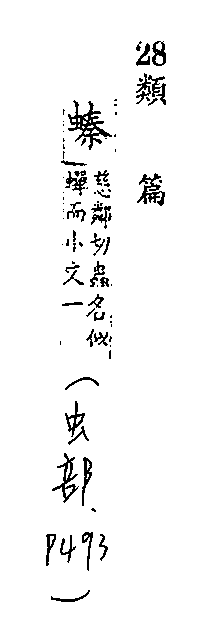 28類篇
螓
慈鄰切蟲名似
蟬而小文一
(虫部、P493)